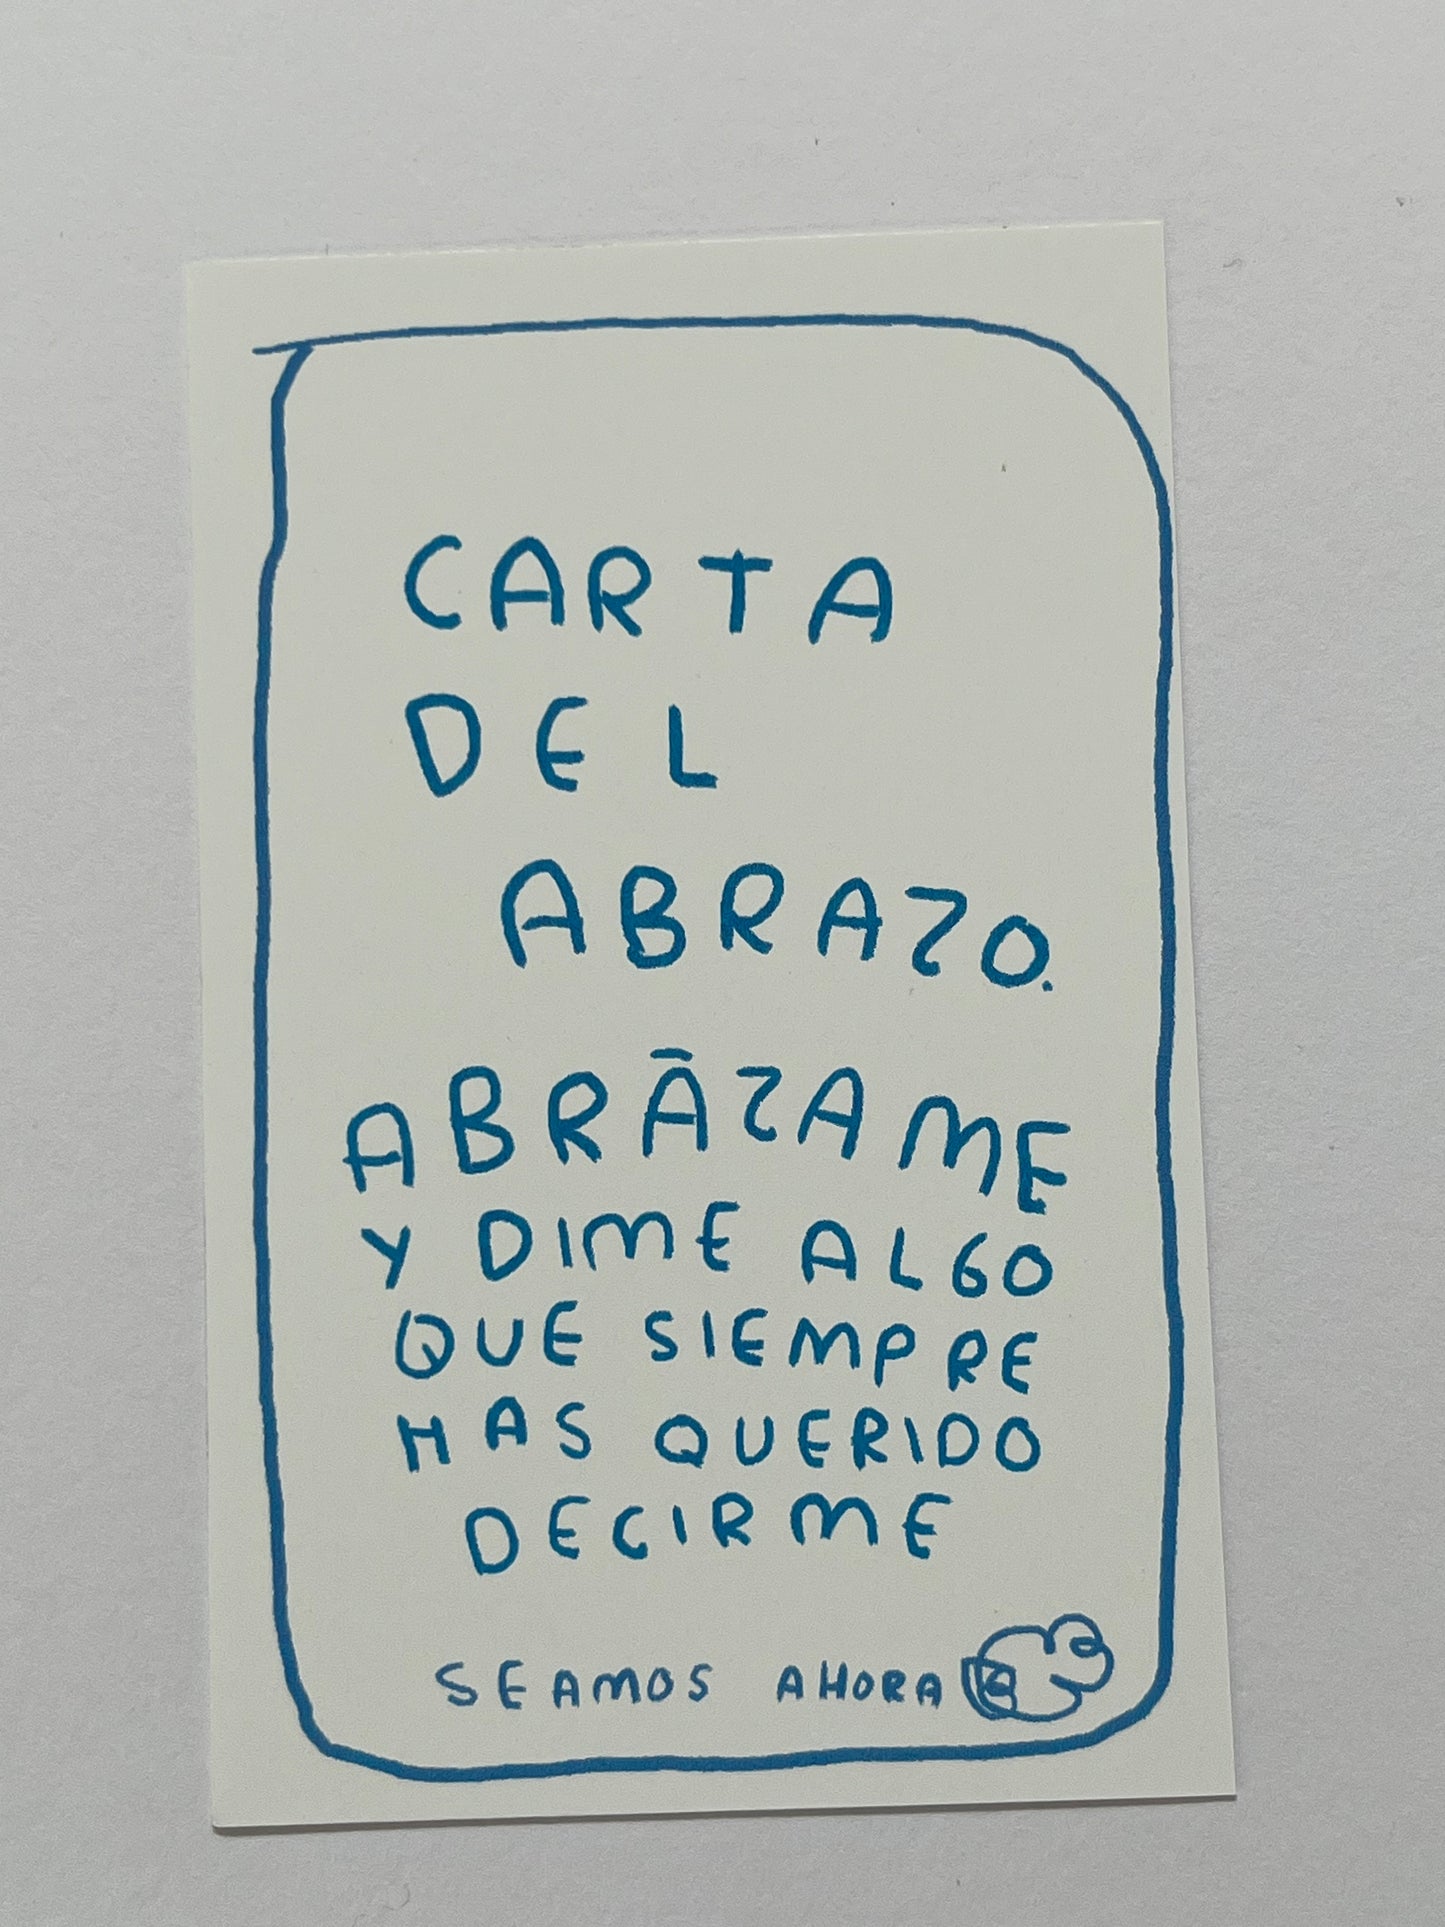 CARTA
DEL
ABRAZO.
ABRĀZAME
Y DIME ALGO
QUE SIEMPRE
HAS QUERIDO
DECIRME
SEAMOS AHORA